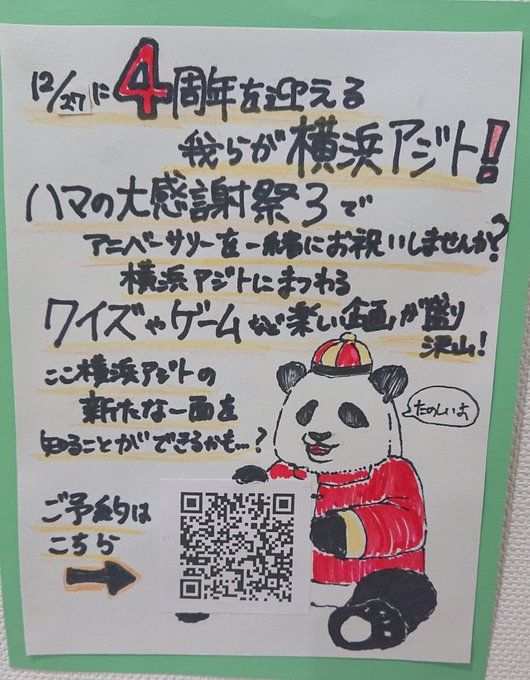 12/27に4周年を迎える
我らが横浜アジト!
ハマの大感謝祭3で
アニバーサリーを一緒にお祝いしませんか?
横浜アジトにまつわる
クイズやゲームなど楽しい企画が盛り
沢山!
ここ横浜アジトの
新たな一面を
知ることができるかも…?
たのしいよ
ご予約は
こちら